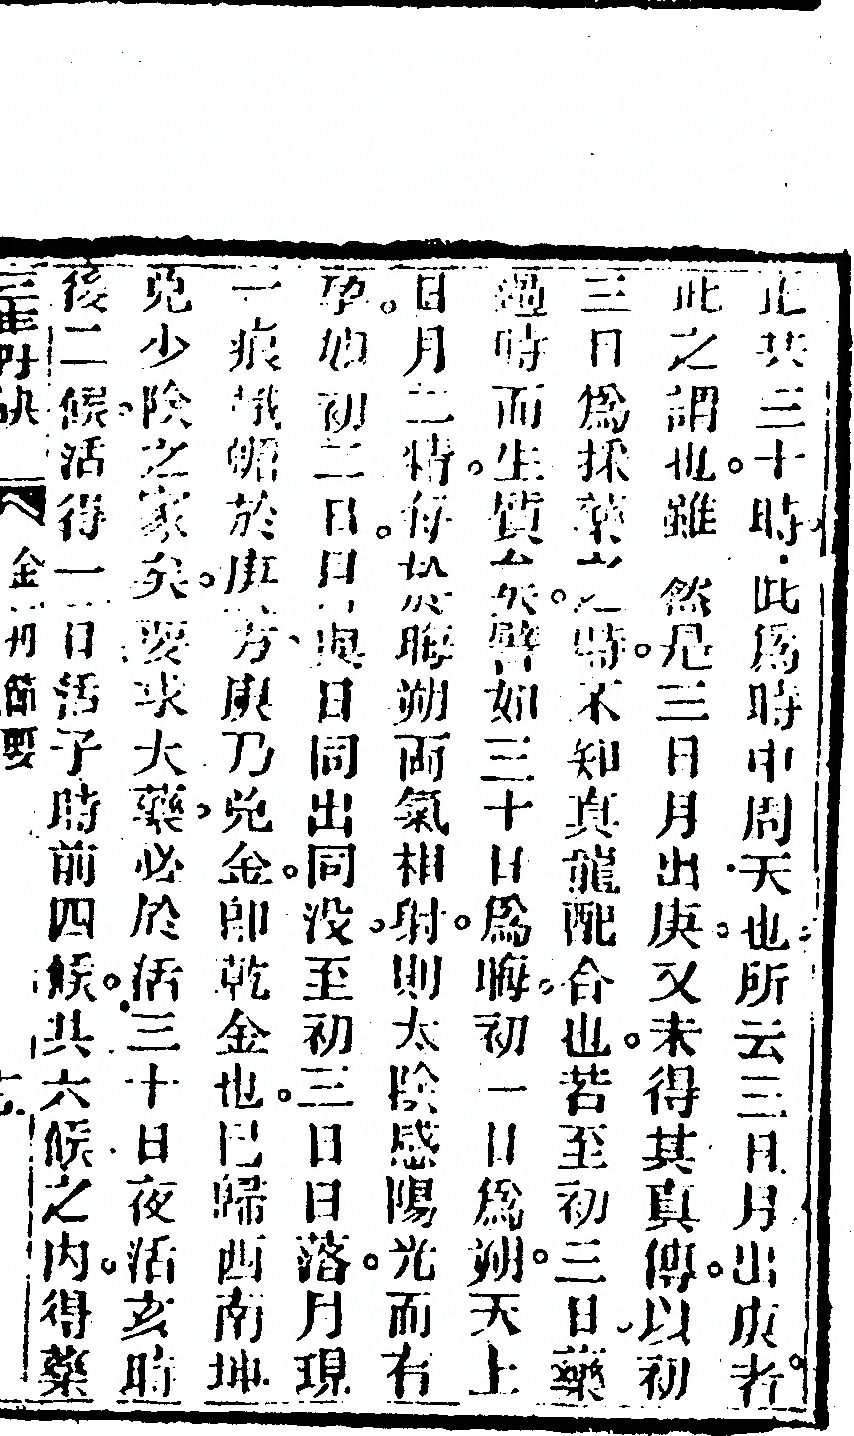 止共三十時此為時中周天也所云三日月出庚者
此之謂也雖然是三日月出庚又未得其真傳以初
三日為採藥之時不知真龍配合也若至初三日藥
過時而生質矣譬如三十日為晦初一日為朔天上
日月二精每於晦朔兩氣相射則太陰感陽光而有
孕如初二日日與日同出同沒至初三日日落月現
一痕蛾𥌒於庚方庚乃兌金即乾金也已歸西南坤
兌少陰之家矣要求大藥必於活三十日夜活亥時
後二候活得一日活子時前四候共六候之內得藥
金丹節要